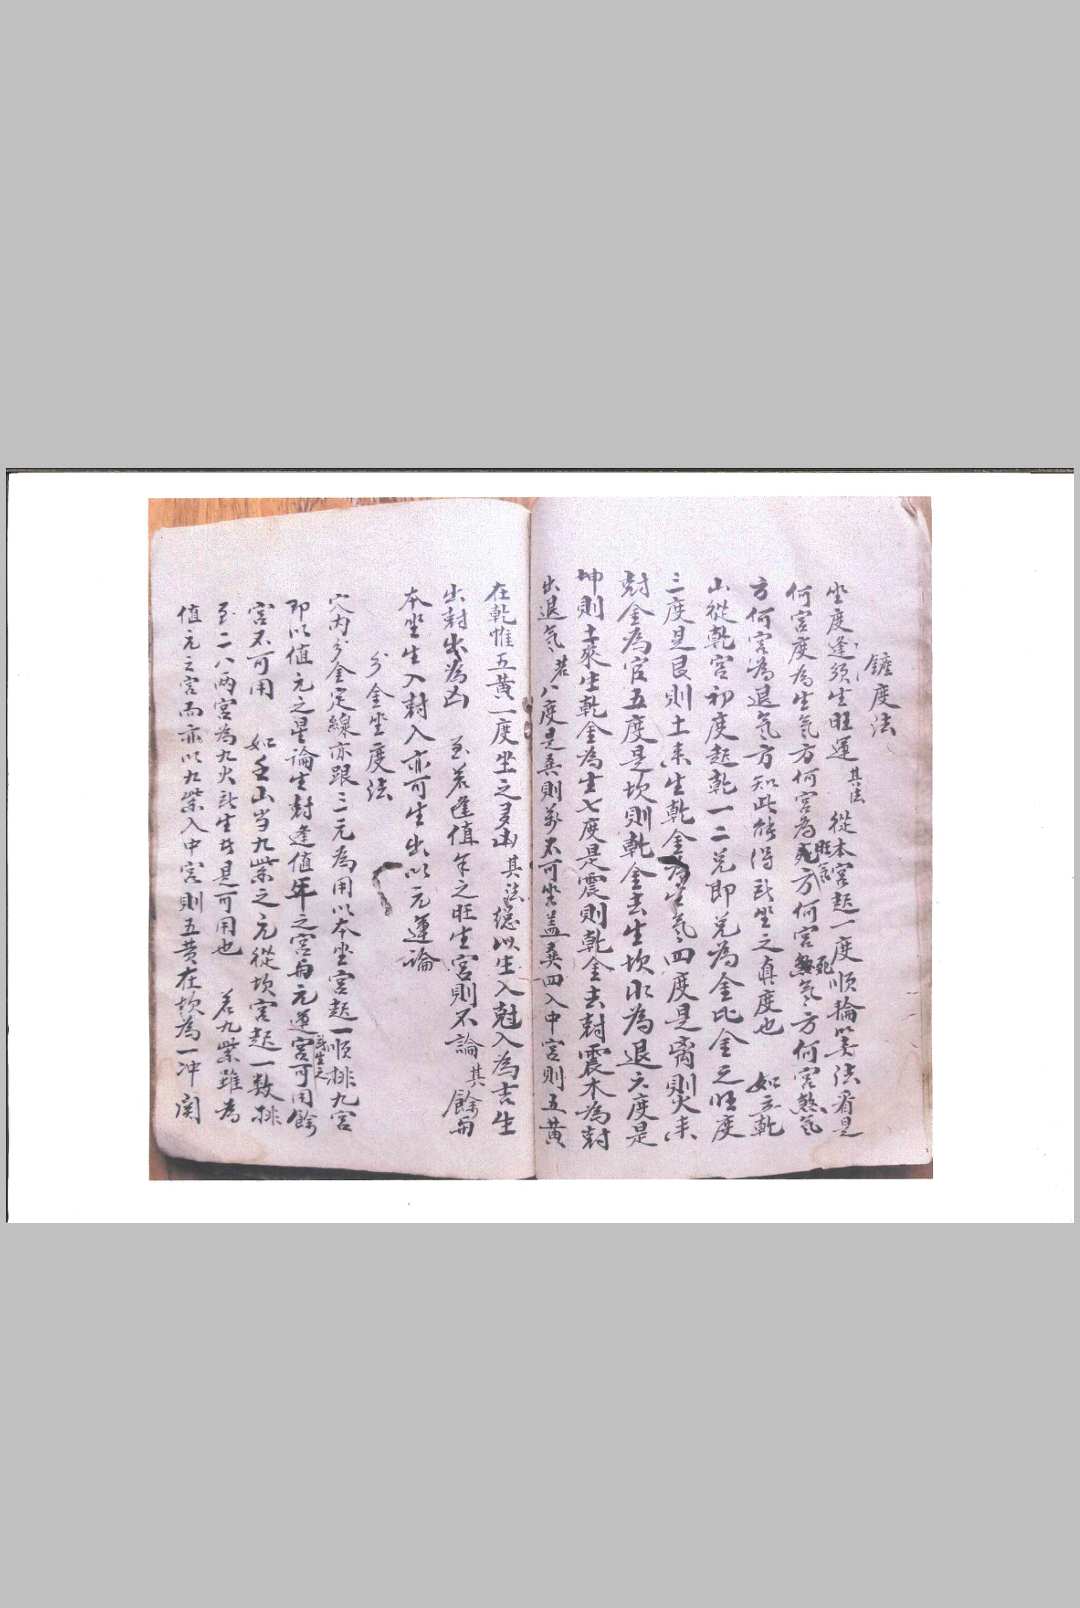 鏟度法
坐度逢須生旺運 其法 從本宮起一度順掄以五法看是
何宮度為生氣方何宮為旺方何宮死氣方何宮煞氣
方何宮為退氣方知此能得所坐之真度也 如立乾
山從乾宮初度起乾一二兌即兌為金比金之旺度
三度是艮則土來生乾金為生氣四度是离則火來
尅金為官五度是坎則乾金去生坎水為退六度是
坤則土來生乾金為生七度是震則乾金去尅震木為尅
出退氣 若八度是巽則萬不可坐蓋巽四入中宮則五黄
在乾惟五黄一度坐之多凶 其法總以生入尅入為吉生
出尅出為凶 至若逢值年之旺生宮則不論 其餘而
本坐生入尅入亦可生出以元運論
分金坐度法
穴內分金定線亦跟三元為用以本坐宮起一順排九宮
即以值元之星論生尅逢值年之宮與元運宮所生之可用餘
宮不可用 如壬山当九紫之元從坎宮起一数排
至二八兩宮為九火所生者是可用也 若九紫雖為
值元之宮而亦以九紫入中宮則五黄在坎為一冲関